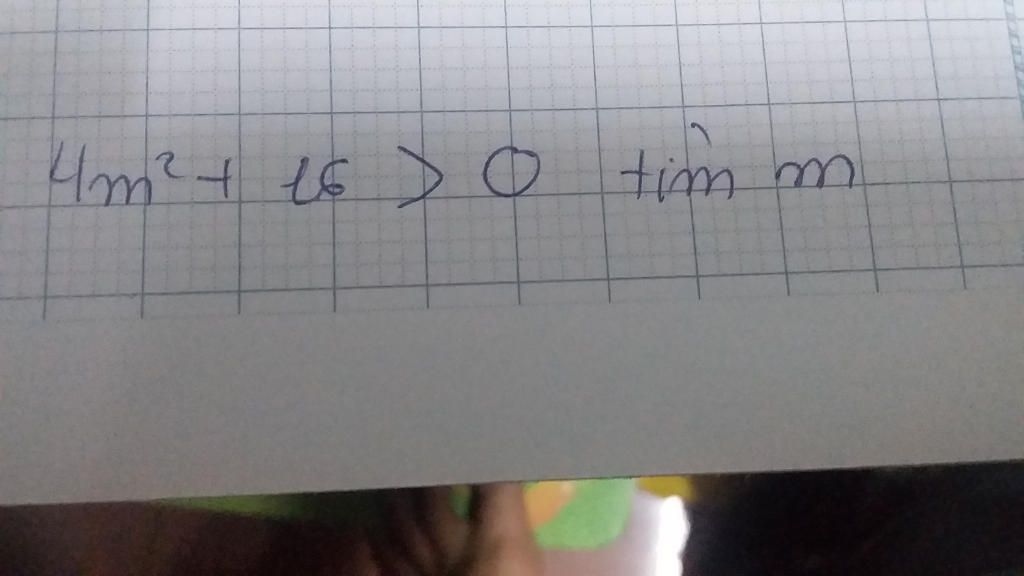 4m² + 16 > 0 tìm m